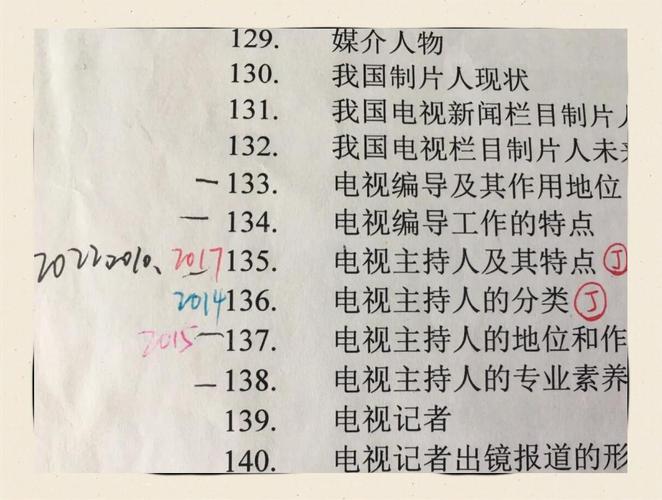 129. 媒介人物
130. 我国制片人现状
131. 我国电视新闻栏目制片人
132. 我国电视栏目制片人未来
一 133. 电视编导及其作用地位
一 134. 电视编导工作的特点
2022 2010、2017 135. 电视主持人及其特点 J
2014 136. 电视主持人的分类 J
2015 一 137. 电视主持人的地位和作
一 138. 电视主持人的专业素养
139. 电视记者
140. 电视记者出镜报道的形